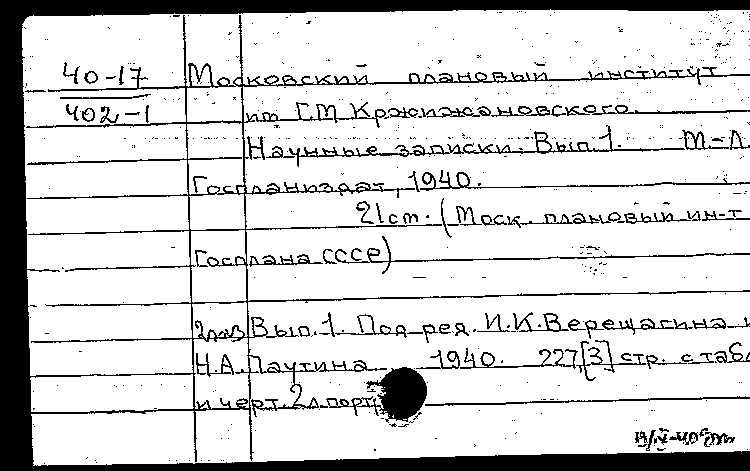 40-17 Московский плановый институт
402-1 им Г.М Кржижановского.
Научные записки. Вып.1. М-Л
Госпланиздат, 1940.
21 cm. (Моск. плановый ин-т
Госплана СССР)
2 экз Вып.1. Под ред. И.К.Верещагина и
Н.А.Паутина 1940. 227,[3] стр. с табл
и черт. 2 л. порт